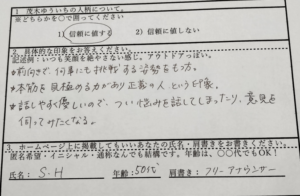 1. 茂木ゆういちの人柄について。
※どちらかを○で囲ってください
1) 信頼に値する 2) 信頼に値しない
2. 具体的な印象をお答えください。
記述例：いつも笑顔を絶やさない感じ。アウトドアっぽい。
・前向きで、何事にも挑戦する姿勢をもつ方。
・本筋を見極める力があり正義の人という印象。
・話しやすく優しいので、つい悩みを話してしまったり、意見を
伺ってみたくなる。
3. ホームページに掲載してもいいあなたの氏名・肩書きをお書きください。
匿名希望・イニシャル・通称なんでも結構です。年齢は、○○代でもOK!
氏名: S・H 年齢: 50代 肩書き: フリーアナウンサー